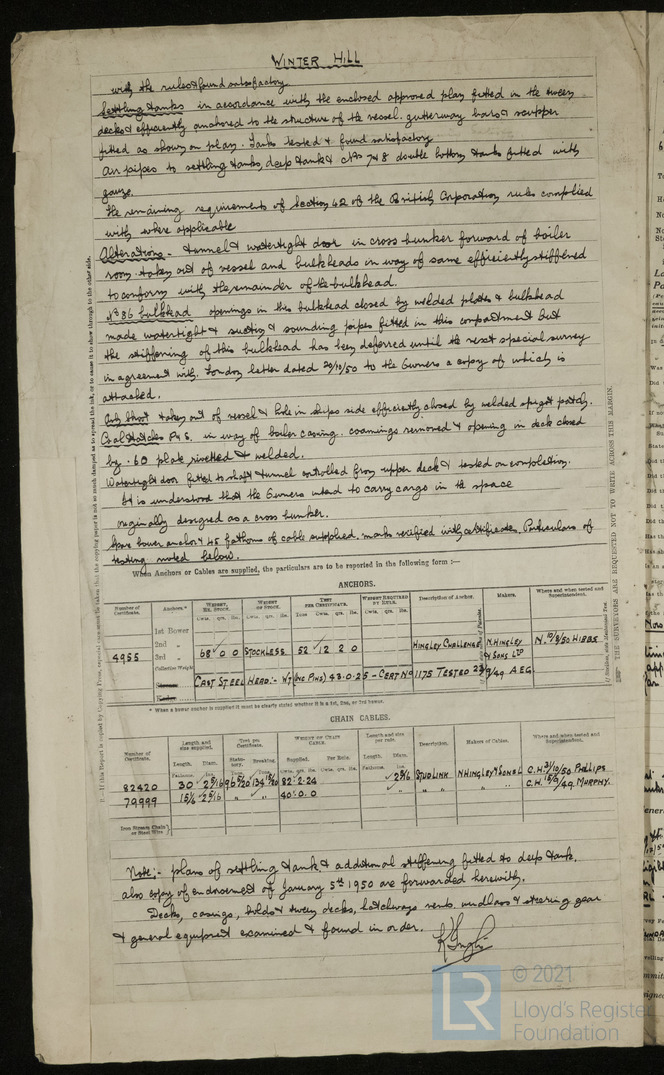 WINTER HILL
with the rules & found satisfactory
Settling tanks in accordance with the enclosed approved plan fitted in the tween
decks & efficiently anchored to the structure of the vessel. gutterway bars & scupper
fitted as shown on plan. Tanks tested & found satisfactory
Air pipes to settling tanks, deep tank & Nos 7 & 8 double bottom tanks fitted with
gauze.
The remaining requirements of Section 42 of the British Corporation rules complied
with where applicable
Alterations - tunnel & watertight door in cross bunker forward of boiler
room taken out of vessel and bulkheads in way of same efficiently stiffened
to conform with the remainder of the bulkhead.
No 86 bulkhead openings in this bulkhead closed by welded plates & bulkhead
made watertight & suction & sounding pipes fitted in this compartment but
the stiffening of this bulkhead has been deferred until the next special survey
in agreement with London letter dated 20/10/50 to the Owners a copy of which is
attached.
Ash Shoot taken out of vessel & hole in ships side efficiently closed by welded spigot patch.
Coal Hatches P & S. in way of boiler casing. coamings removed & opening in deck closed
by .60 plate rivetted & welded.
Watertight door fitted to shaft tunnel controlled from upper deck & tested on completion.
It is understood that the Owners intend to carry cargo in the space
originally designed as a cross bunker.
Spare bower anchor & 45 fathoms of cable supplied. marks verified with certificates. Particulars of
testing noted below.
When Anchors or Cables are supplied, the particulars are to be reported in the following form :—
ANCHORS.
Number of Certificate. Anchors.* Weight, Ex. Stock. Weight of Stock. Test per Certificate. Weight Required by Rule. Description of Anchor. Makers. Where and when tested and Superintendent.
Cwts. qrs. lbs. Cwts. qrs. lbs. Tons Cwts. qrs. lbs. Cwts. qrs. lbs.
1st Bower
2nd „
4955 3rd „ 68 0 0 STOCKLESS 52 12 2 0 HINGLEY CHALLENGE N. HINGLEY & SONS LTD N. 10/3/50 HIBBS
Collective Weight
Stream CAST STEEL HEAD:- WT (INC PINS) 43.0.25 - CERT No 1175 TESTED 23/9/49 A.E.G.
Kedge
* When a bower anchor is supplied it must be clearly stated whether it is a 1st, 2nd, or 3rd bower.
CHAIN CABLES.
Number of Certificate. Length and size supplied. Test per Certificate. Weight of Chain Cable. Length and size per rule. Description. Makers of Cables. Where and when tested and Superintendent.
Length. Diam. Statutory. Breaking. Supplied. Per Rule. Length. Diam.
Fathoms. Ins. Tons. Tons. Cwts. qrs. lbs. Cwts. qrs. lbs. Fathoms. Ins.
82420 30 2 5/16 82.2.24 2 5/16 STUD LINK N HINGLEY & SONS L C.H. 3/10/50 PHILLIPS
79999 15 1/4 2 5/16 „ „ 40.0.0 „ „ „ C.H. 15/3/49. MURPHY.
Iron Stream Chain or Steel Wire
Note:- plans of settling tank & additional stiffening fitted to deep tank.
also copy of endorsement of January 5th 1950 are forwarded herewith.
Decks, casings, holds & tween decks, hatchways vents windlass & steering gear
& general equipment examined & found in order.
If this Report is copied by Copying Press, especial care must be taken that the copying paper is not so much damped as to spread the ink, or to cause it to show through to the other side.
THE SURVEYORS ARE REQUESTED NOT TO WRITE ACROSS THIS MARGIN.
© 2021
LR
Lloyd's Register
Foundation